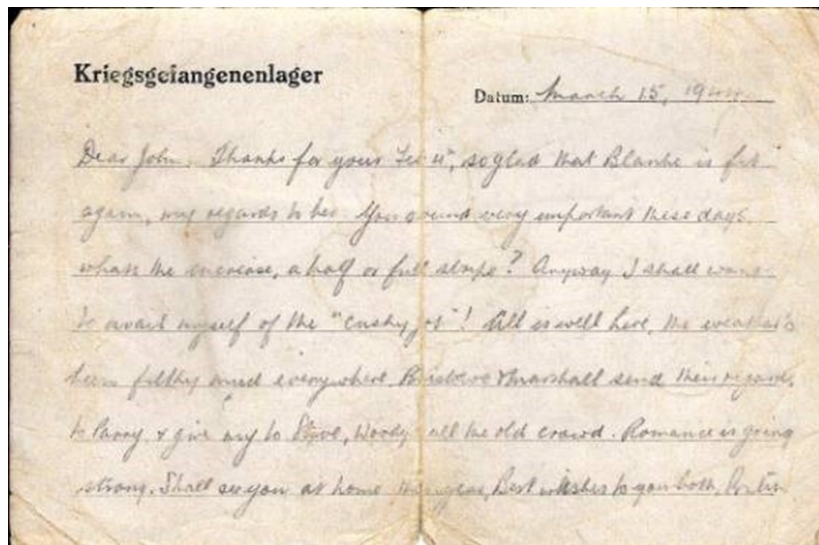 Kriegsgefangenenlager
Datum: March 15, 1944
Dear John. Thanks for yours Feb, so glad that Blanche is fit
again, my regards to her. You sound very important these days.
whats the increase, a half or full stripe? Anyway I shall want
to avail myself of the "cushy job"! All is well here, the weather's
been filthy mud everywhere. & Marshall send their regards
to Parry & give my to Steve, Woody all the old crowd. Romance is going
strong. Shall see you at home this year, Best wishes to you both,